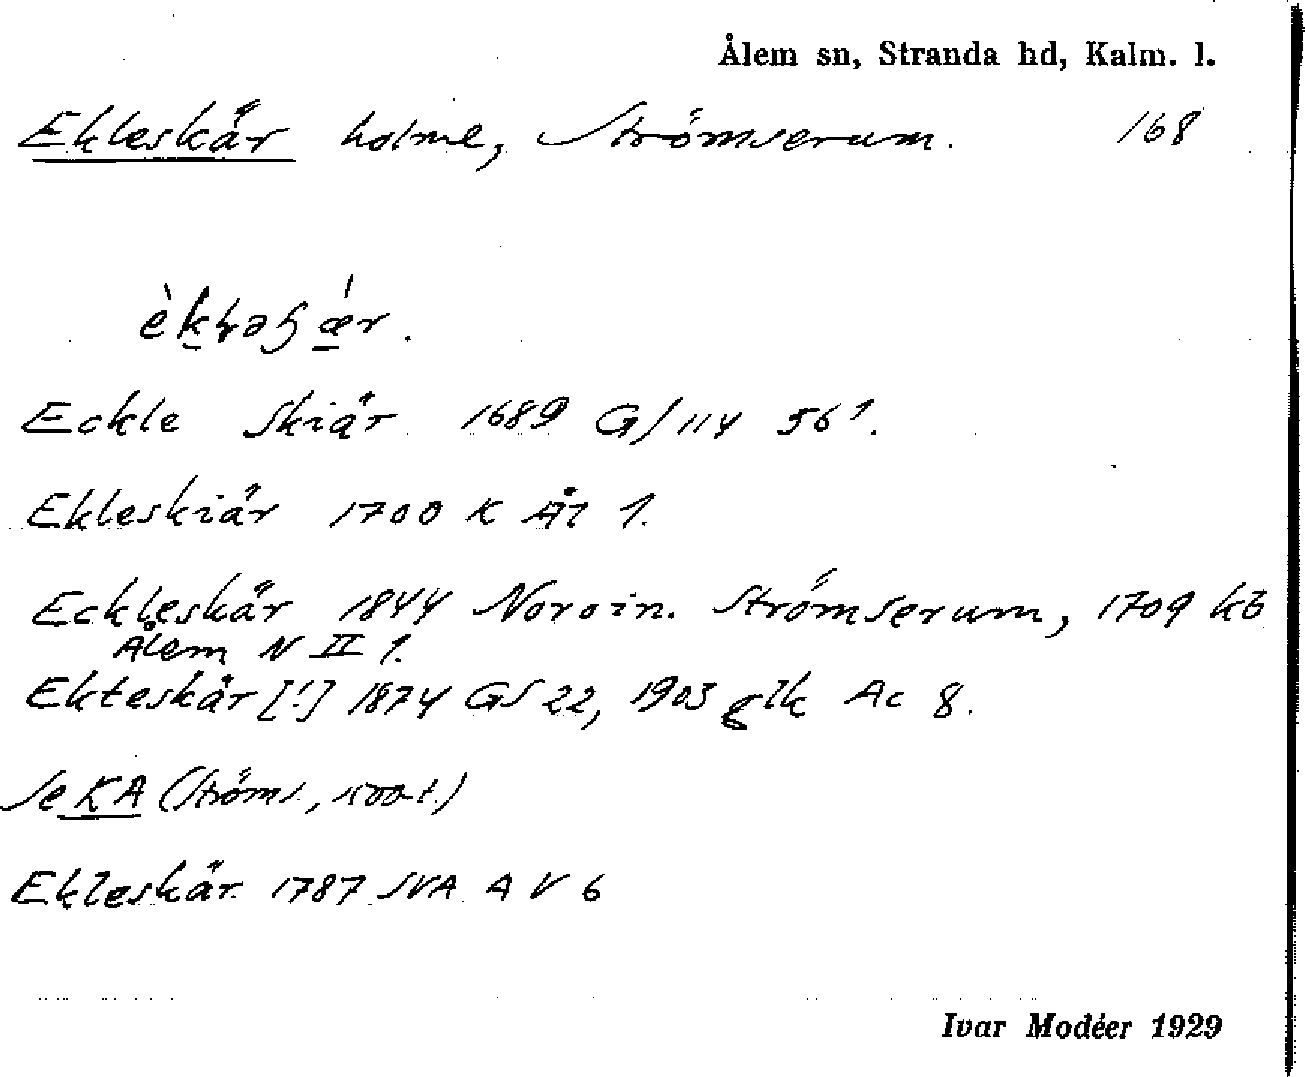 Ålem sn, Stranda hd, Kalm. l.
Ekleskär holme, Strömserum. 168
Eckle Skiär 1689 G/114 56¹.
Ekleskiär 1700 K Ål 1.
Eckleskär 1844 Noroin. Strömserum, 1709 kb
Ålem N II 1.
Ekteskär [!] 1874 GS 22, 1903 Ac 8.
Se KA (Ströms., 1500-t.)
Ekleskär 1787 SVA A V 6
Ivar Modéer 1929